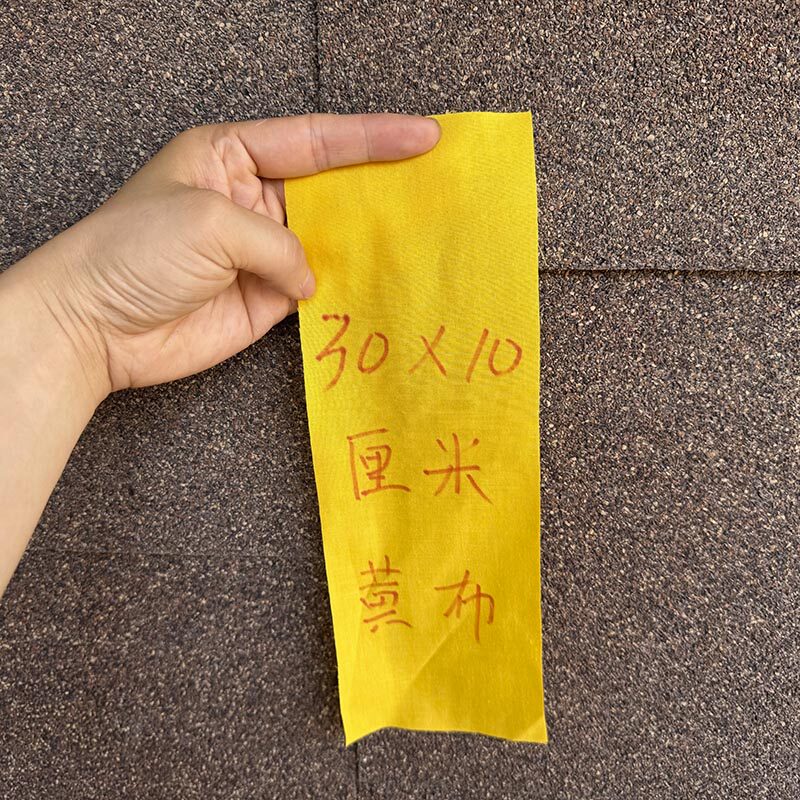 30×10
厘米
黄布